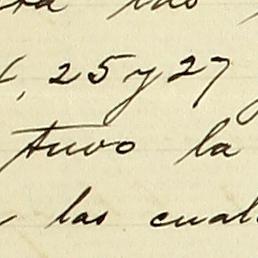 , 25 y 27
tuvo la
las cual